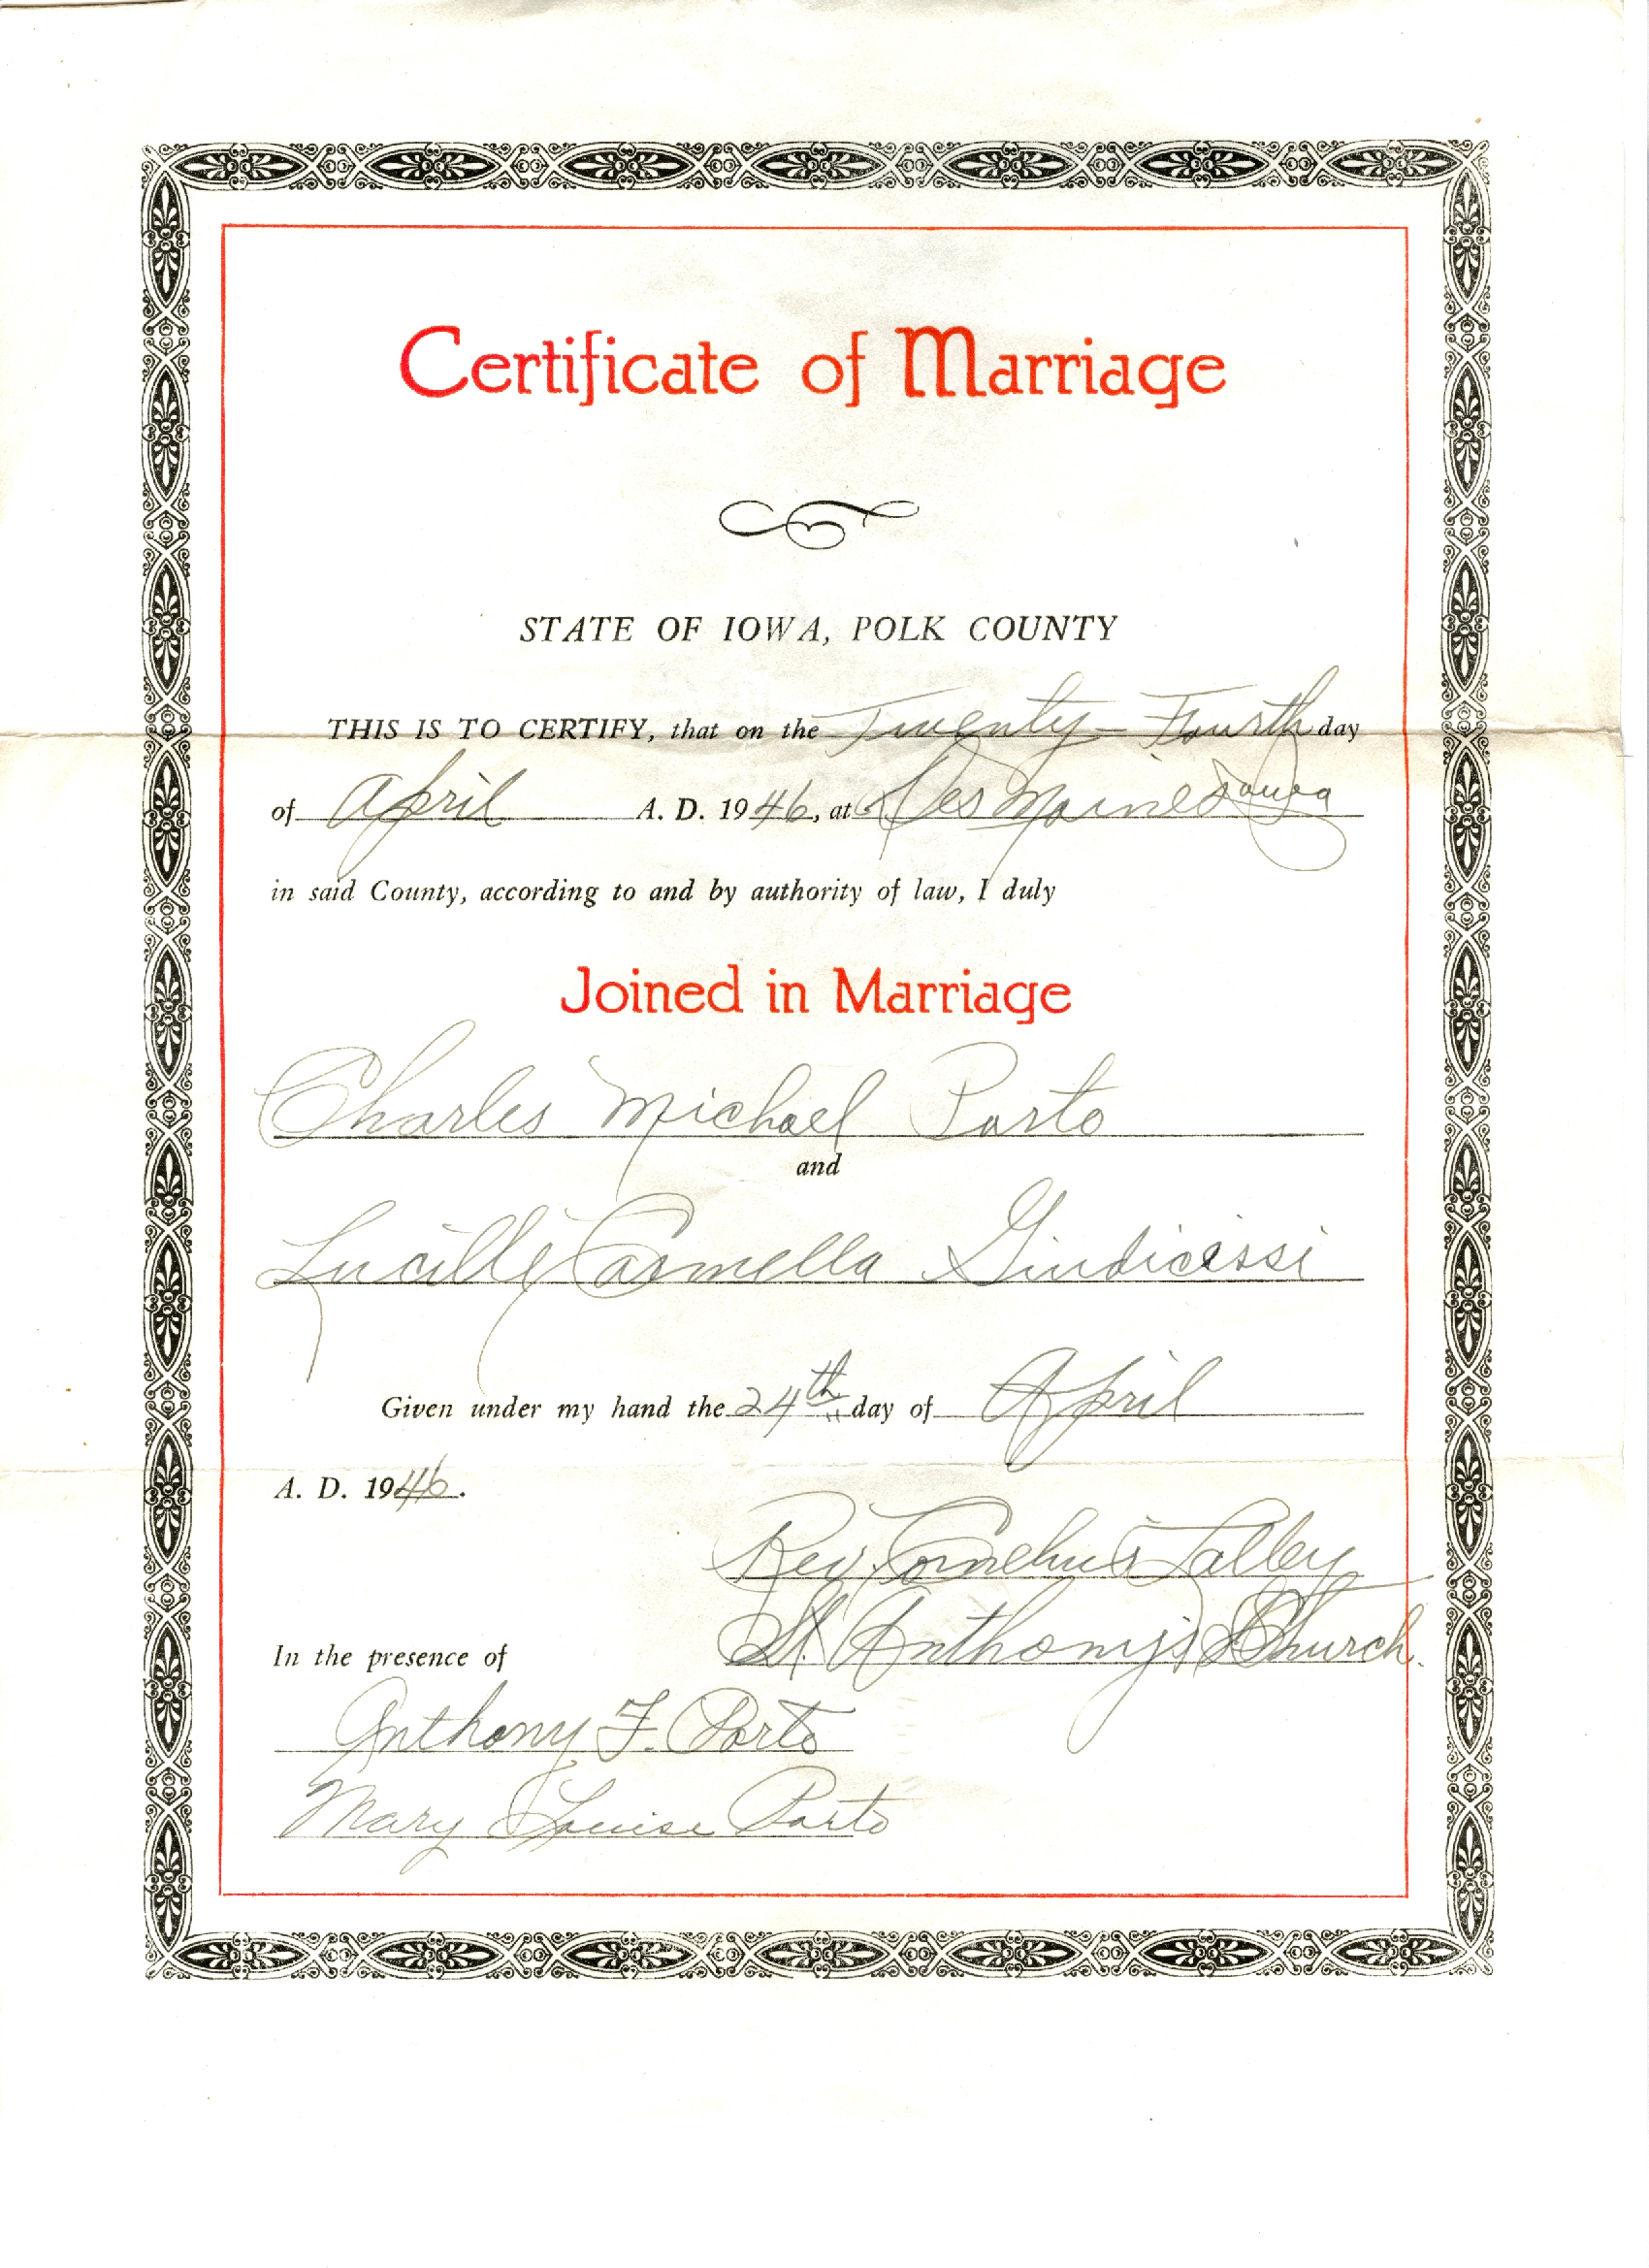 Certificate of Marriage
STATE OF IOWA, POLK COUNTY
THIS IS TO CERTIFY, that on the Twenty-Fourth day
of April A. D. 1946, at Des Moines Iowa
in said County, according to and by authority of law, I duly
Joined in Marriage
Charles Michael Porto
and
Lucille Carmella Giudicessi
Given under my hand the 24th day of April
A. D. 1946.
Rev. Cornelius Lalley
St. Anthony's Church.
In the presence of
Anthony F. Porto
Mary Louise Porto